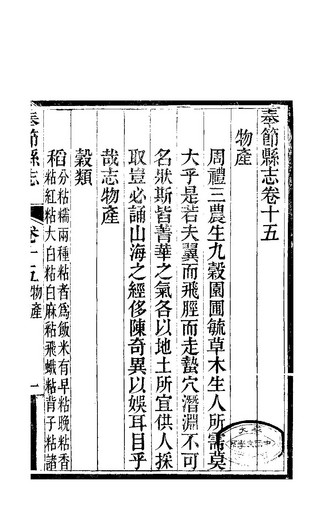 奉節縣志卷十五
物產
周禮三農生九穀園圃毓草木生人所需莫
大乎是若夫翼而飛脛而走蟄穴潛淵不可
名狀斯皆菁華之氣各以地土所宜供人採
取豈必誦山海之經侈陳奇異以娛耳目乎
哉志物產
穀類
稻分粘糯兩種粘者爲飯米有早粘晚粘香
粘紅粘大白粘白麻粘飛蛾粘背子粘諸
奉節縣志
卷十五物產
一